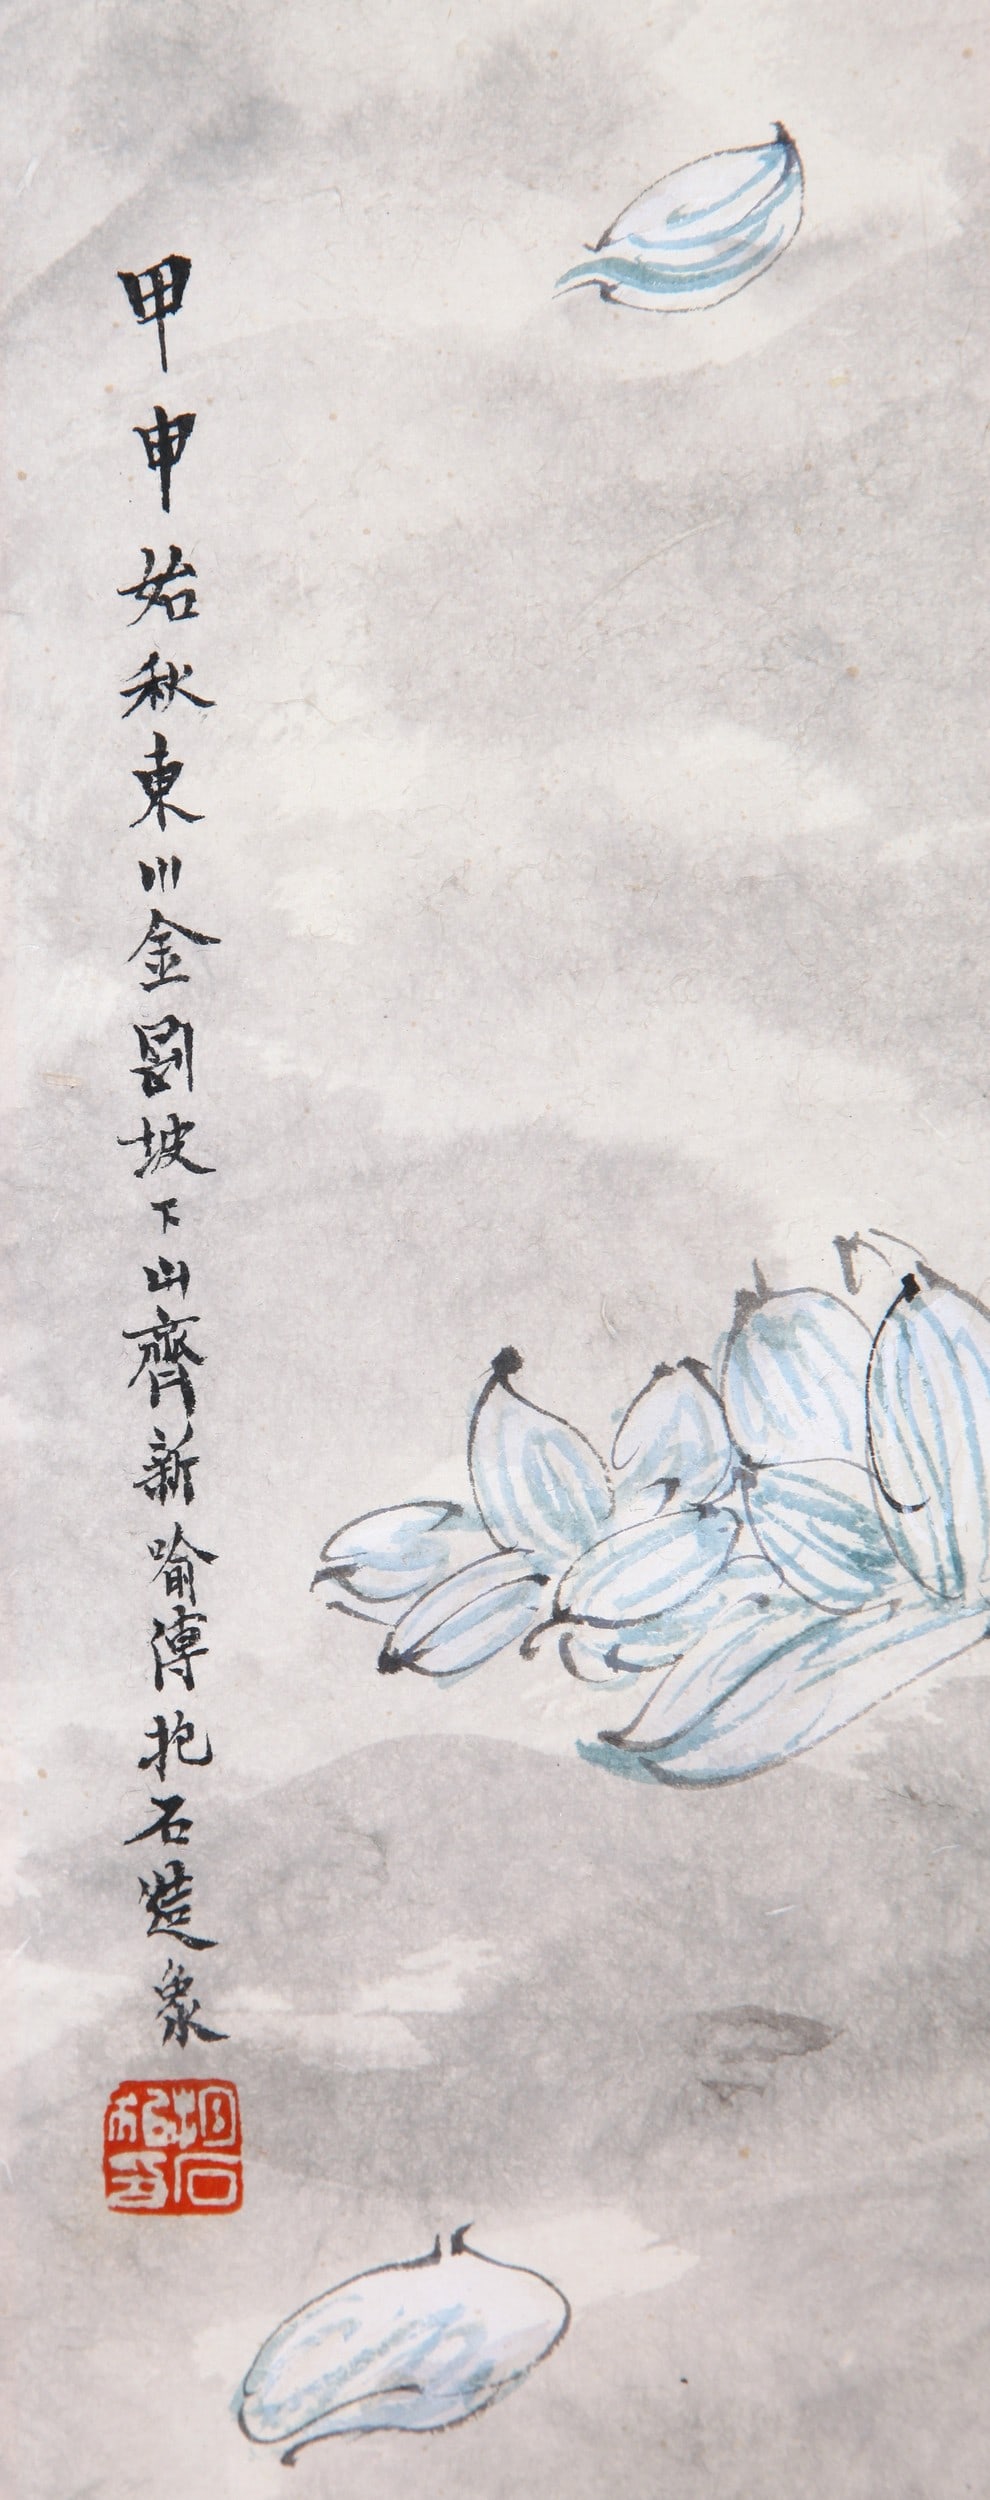 甲申始秋東川金剛坡下山齊新喻傅抱石造象
抱石私印